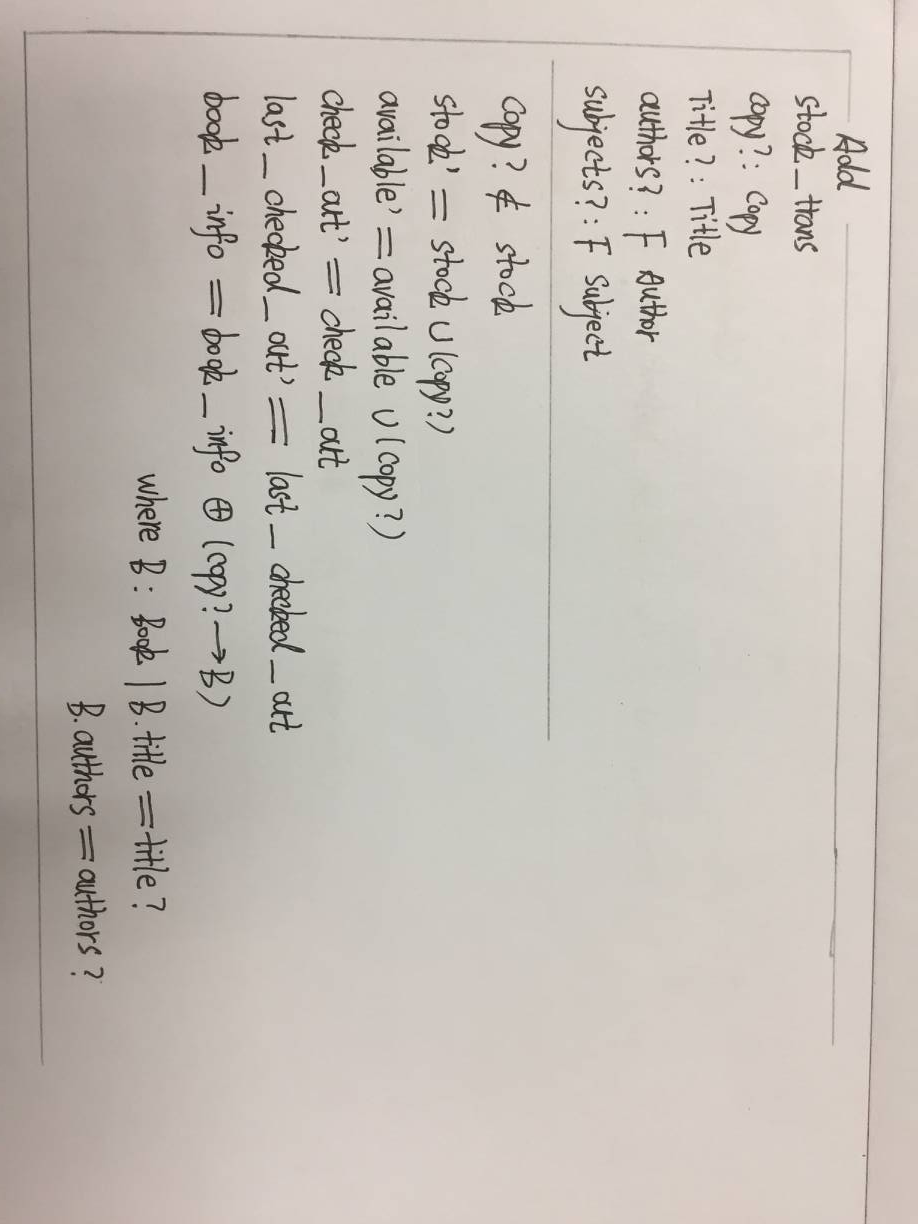 Add
stock_trans
copy?: Copy
Title?: Title
authors?: F Author
subjects?: F Subject
copy? ∉ stock
stock' = stock ∪ (copy?)
available' = available ∪ (copy?)
check_out' = check_out
last_checked_out' = last_checked_out
book_info = book_info ⊕ (copy? → B)
where B: Book | B.title = title?
B.authors = authors?